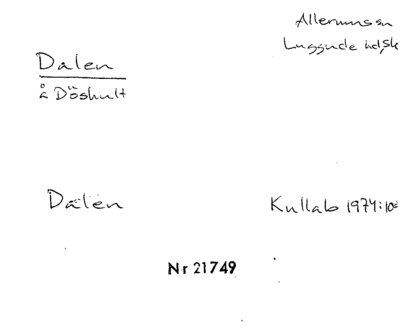 Allerums sn
Luggude hd, Sk
Dalen
å Döshult
Dalen
Kullab 1974:10
Nr 21749